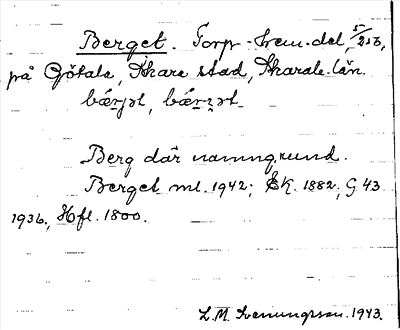 Berget. Torp - hem.del, 5/256,
på Götala, Skara stad, Skarab. län.
bǽrjət, bǽrʒət
Berg där namngrund.
Berget ml. 1942; EK. 1882; G 43
1936, Hfl. 1800.
L. M. Svenungsson. 1943.